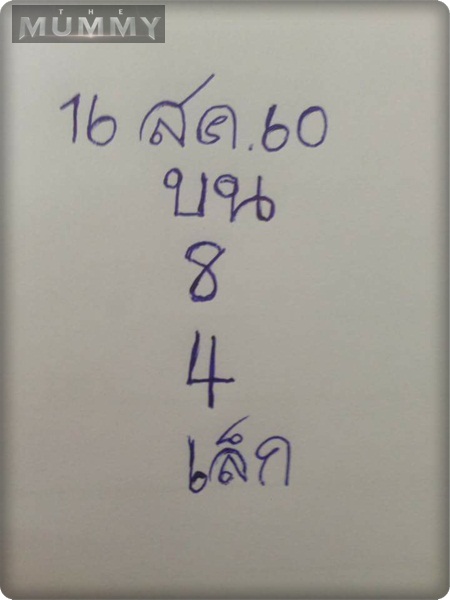 THE
MUMMY
16 สค.60
บน
8
4
เล็ก